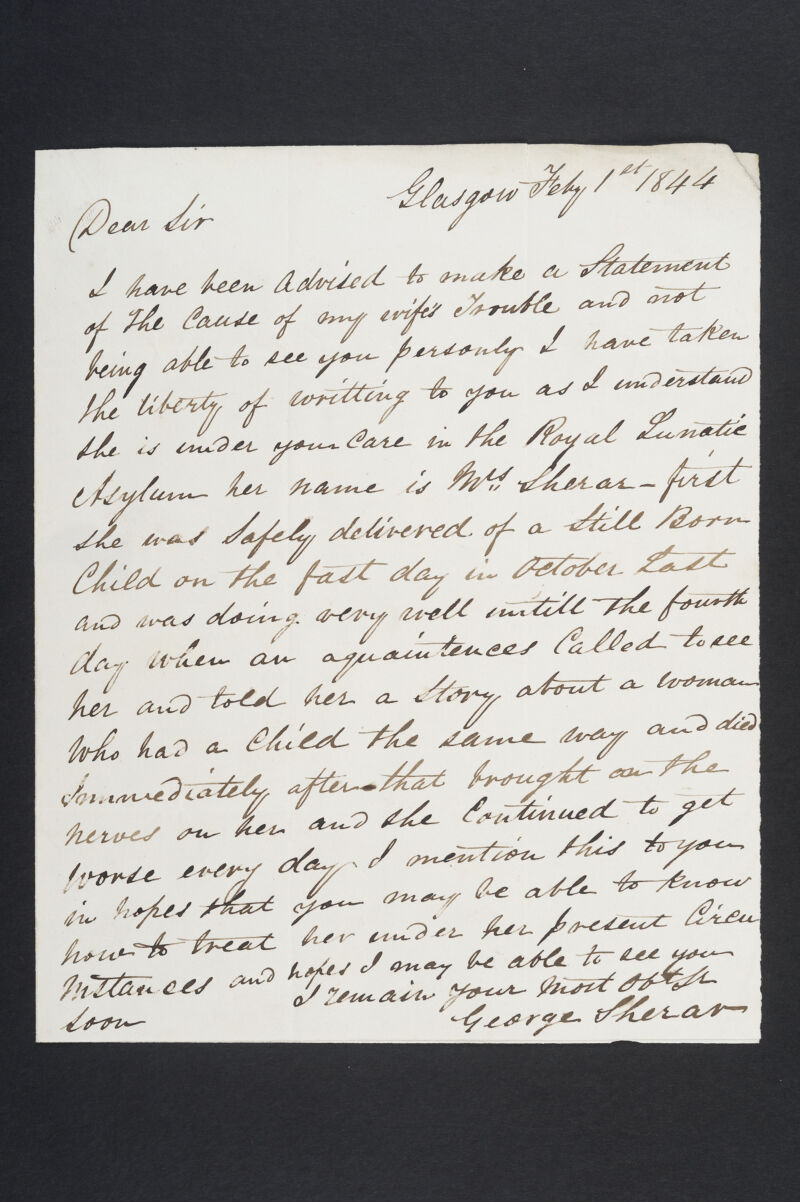 Glasgow Feby 1st 1844
Dear Sir
I have been Advised to make a Statement
of The Cause of my wife's Trouble and not
being able to see you personly I have taken
the liberty of writting to you as I understand
she is under your Care in the Royal Lunatic
Asylum her name is Mrs Sherar - first
she was Safely delivered of a Still Born
Child on the fast day in October Last
and was doing very well untill the fourth
day when an aquaintences Called to see
her and told her a Story about a woman
who had a Child the same way and died
Immediately after that brought on the
nerves on her and she Continued to get
worse every day I mention this to you
in hopes that you may be able to know
how to treat her under her present Circu
mstances and hopes I may be able to see you
soon I remain your Most Obt St
George Sherar